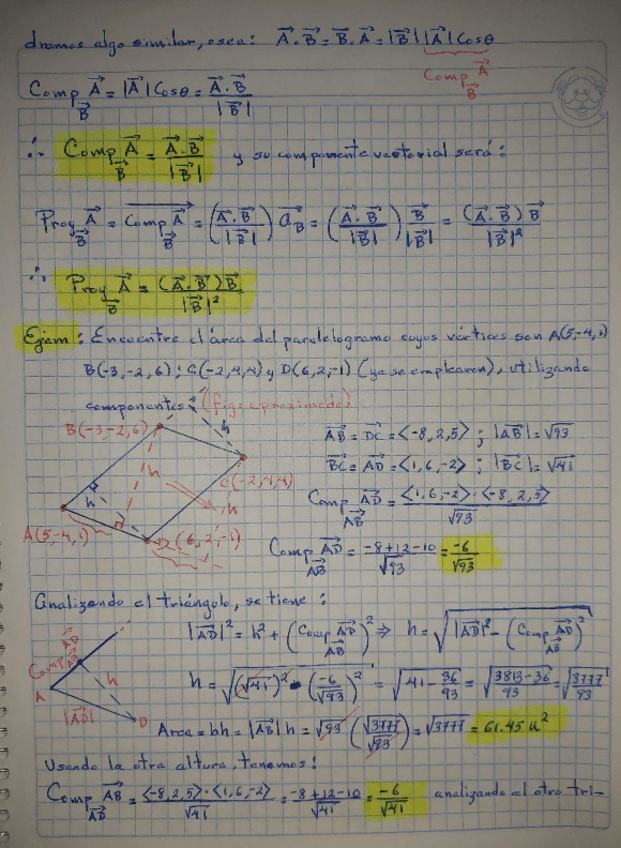 dremos algo similar, osea: A⃗ · B⃗ = B⃗ · A⃗ = |B⃗| |A⃗| Cosθ
Comp_B⃗ A⃗
Comp_B⃗ A⃗ = |A⃗| Cosθ = A⃗ · B⃗ / |B⃗|
∴ Comp_B⃗ A⃗ = A⃗ · B⃗ / |B⃗| y su componente vectorial será:
Proy_B⃗ A⃗ = Comp_B⃗ A⃗ = (A⃗ · B⃗ / |B⃗|) a⃗_B = (A⃗ · B⃗ / |B⃗|) B⃗ / |B⃗| = (A⃗ · B⃗) B⃗ / |B⃗|²
∴ Proy_B⃗ A⃗ = (A⃗ · B⃗) B⃗ / |B⃗|²
Ejem: Encuentre el área del paralelogramo cuyos vértices son A(5,-4,1)
B(-3,-2,6); C(-2,4,4) y D(6,2,-1) (ya se emplearon), utilizando
componentes: (fig. aproximada)
B(-3,-2,6)
h
AB⃗ = DC⃗ = <-8,2,5> ; |AB⃗| = √93
BC⃗ = AD⃗ = <1,6,-2> ; |BC⃗| = √41
h
C(-2,4,4)
h
h
A(5,-4,1)
D(6,2,-1)
Comp_AB⃗ AD⃗ = <1,6,-2> · <-8,2,5> / √93
Comp_AB⃗ AD⃗ = -8+12-10 / √93 = -6 / √93
Analizando el triángulo, se tiene:
Comp_AB⃗ AD⃗
A
h
|AD⃗|
D
|AD⃗|² = h² + (Comp_AB⃗ AD⃗)² ⇒ h = √(|AD⃗|² - (Comp_AB⃗ AD⃗)²)
h = √((√41)² - (-6/√93)²) = √(41 - 36/93) = √((3813-36)/93) = √(3777/93)
Area = bh = |AB⃗| h = √93 (√3777/√93) = √3777 = 61.45 u²
Usando la otra altura, tenemos:
Comp_AD⃗ AB⃗ = <-8,2,5> · <1,6,-2> / √41 = -8+12-10 / √41 = -6 / √41 analizando el otro trí-